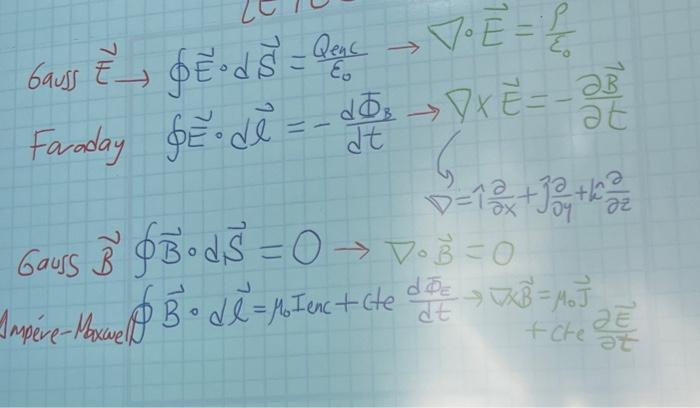 Gauss E⃗ → ∮E⃗·dS⃗ = Qenc/ε₀ → ∇·E⃗ = ρ/ε₀
Faraday ∮E⃗·dℓ⃗ = -dΦ_B/dt → ∇×E⃗ = -∂B⃗/∂t
∇ = î ∂/∂x + ĵ ∂/∂y + k̂ ∂/∂z
Gauss B⃗ ∮B⃗·dS⃗ = 0 → ∇·B⃗ = 0
Ampére-Maxwell ∮B⃗·dℓ⃗ = μ₀Ienc + cte dΦ_E/dt → ∇×B⃗ = μ₀J⃗
+ cte ∂E⃗/∂t